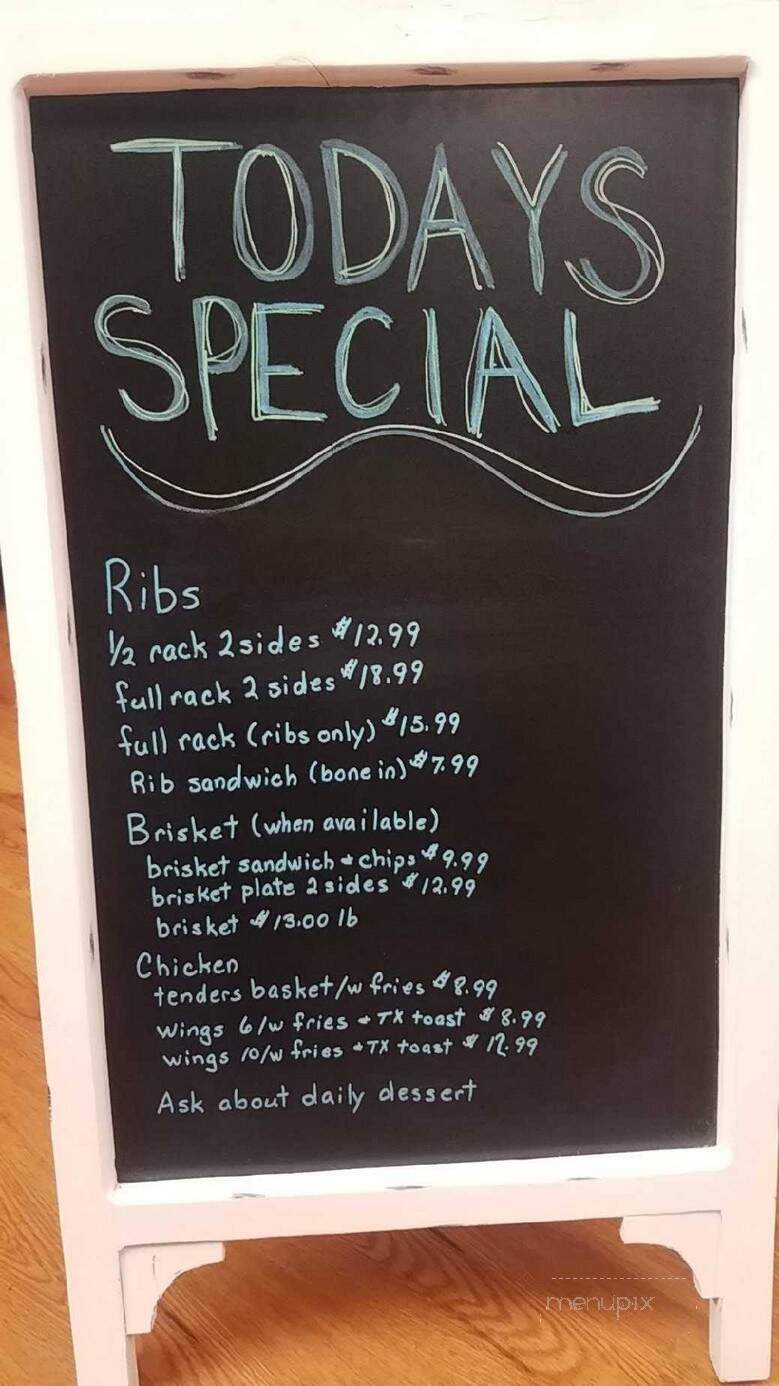 TODAYS
SPECIAL
Ribs
1/2 rack 2 sides $12.99
full rack 2 sides $18.99
full rack (ribs only) $15.99
Rib sandwich (bone in) $7.99
Brisket (when available)
brisket sandwich & chips $9.99
brisket plate 2 sides $12.99
brisket $13.00 lb
Chicken
tenders basket/w fries $8.99
wings 6/w fries & TX toast $8.99
wings 10/w fries & TX toast $12.99
Ask about daily dessert
menupix